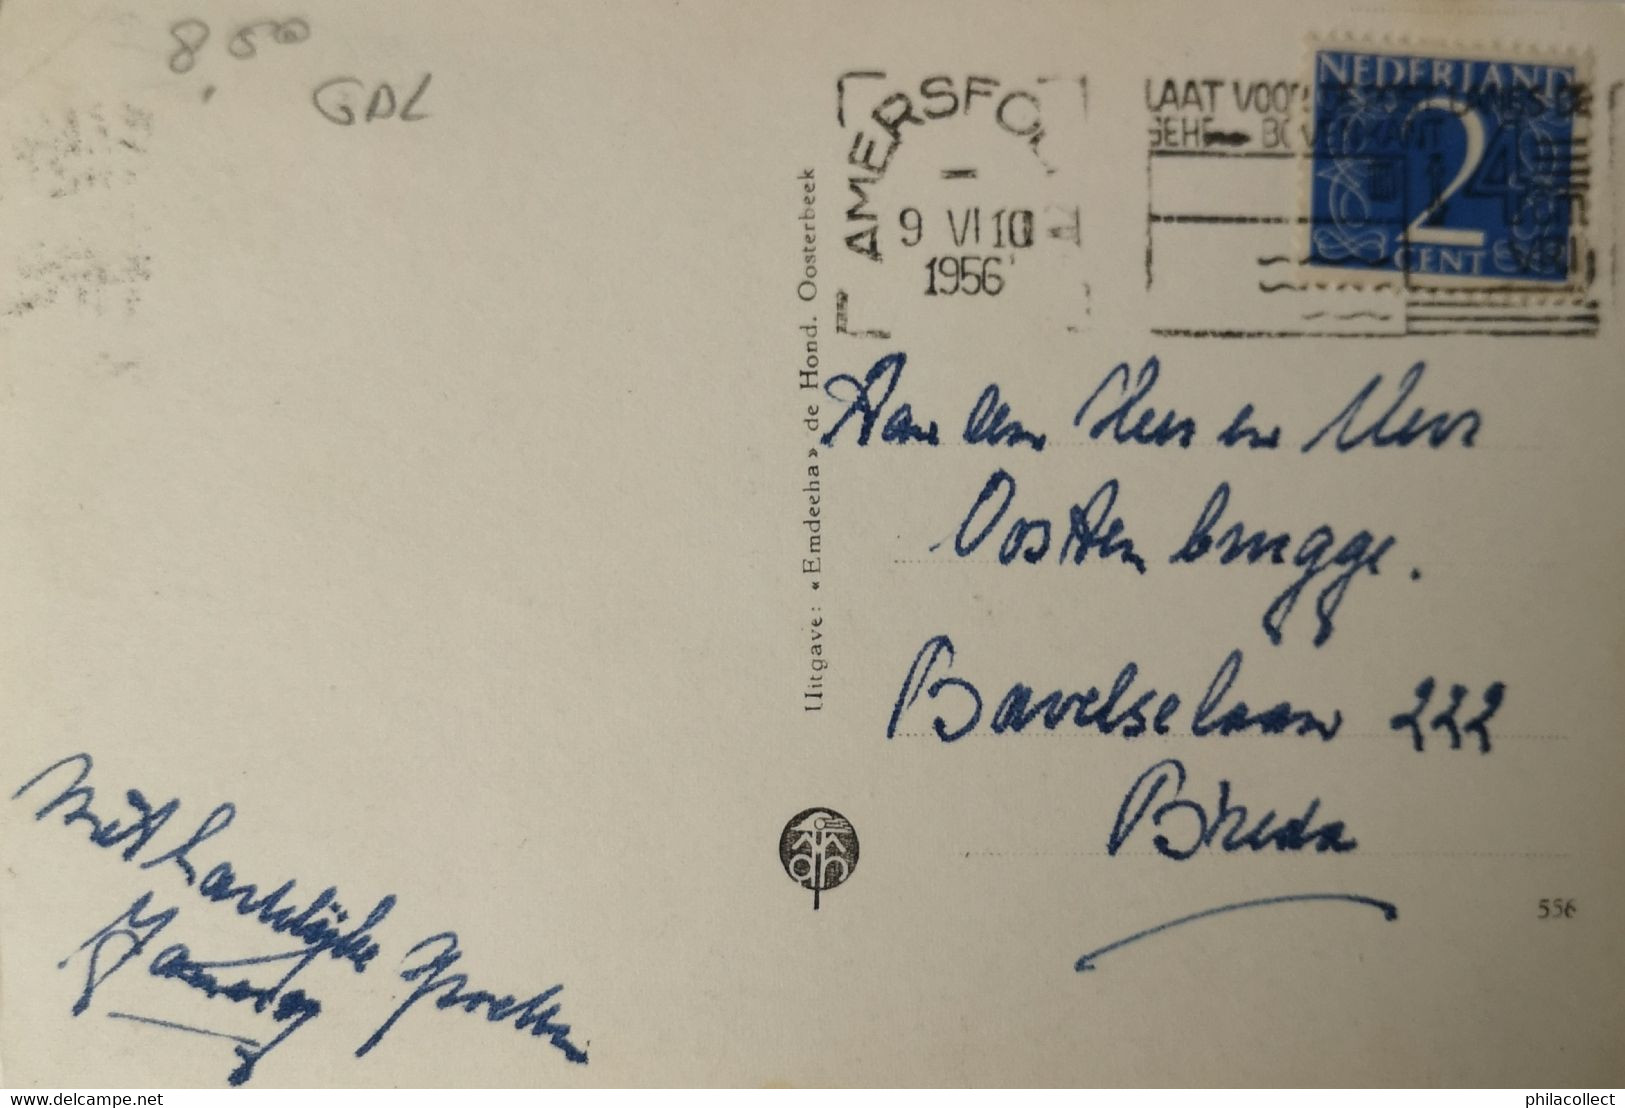 8,50
GDL
AMERSFOO
9 VI 10
1956
LAAT VOOR DE POST LANGS DE
GEHE BOVENKANT
14
VRIJ
NEDERLAND
2
CENT
Uitgave: «Emdeeha» de Hond. Oosterbeek
Aan den Heer en Mevr
Oostenbrugge.
Bavelselaan 222
Breda
Met hartelijke groeten
556
delcampe.net
philacollect